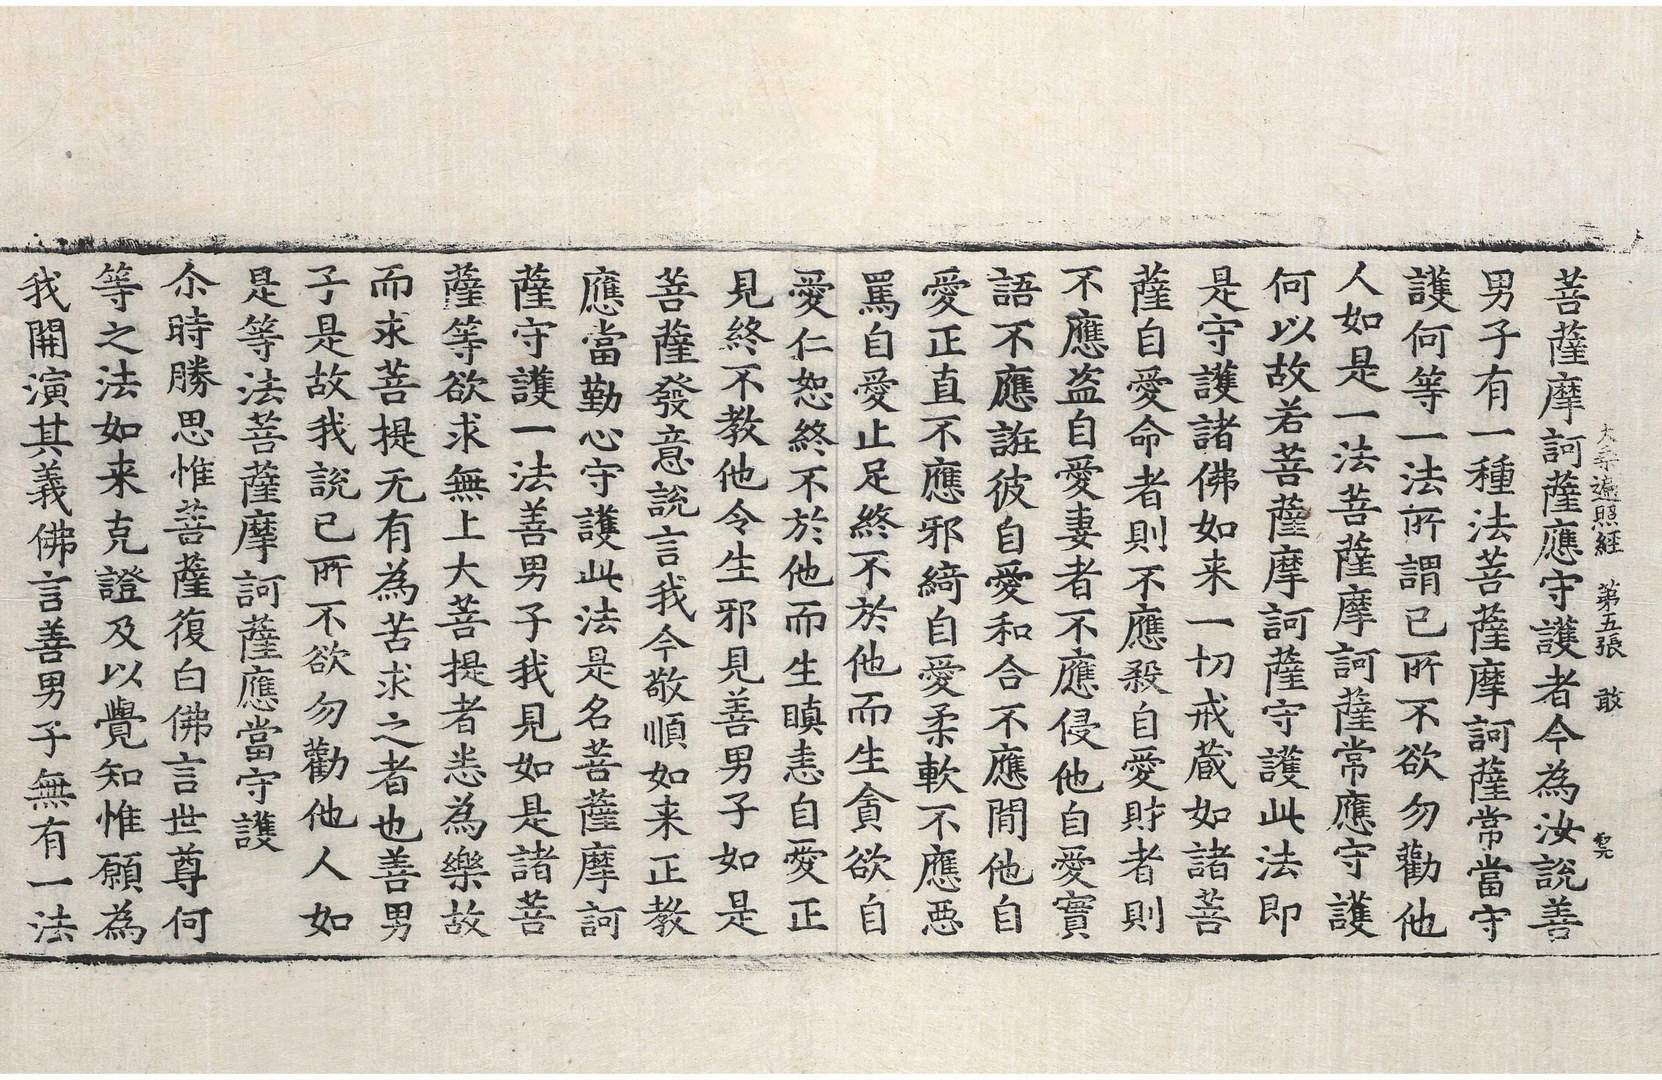 大乘遍照経 第五張 敢
菩薩摩訶薩應守護者今為汝説善
男子有一種法菩薩摩訶薩常當守
護何等一法所謂己所不欲勿勸他
人如是一法菩薩摩訶薩常應守護
何以故若菩薩摩訶薩守護此法即
是守護諸佛如来一切戒蔵如諸菩
薩自愛命者則不應殺自愛財者則
不應盗自愛妻者不應侵他自愛實
語不應誑彼自愛和合不應間他自
愛正直不應邪綺自愛柔軟不應惡
罵自愛止足終不於他而生貪欲自
愛仁恕終不於他而生瞋恚自愛正
見終不教他令生邪見善男子如是
菩薩發意説言我今敬順如来正教
應當勤心守護此法是名菩薩摩訶
薩守護一法善男子我見如是諸菩
薩等欲求無上大菩提者悉為樂故
而求菩提无有為苦求之者也善男
子是故我説已所不欲勿勸他人如
是等法菩薩摩訶薩應當守護
尒時勝思惟菩薩復白佛言世尊何
等之法如来克證及以覺知惟願為
我開演其義佛言善男子無有一法